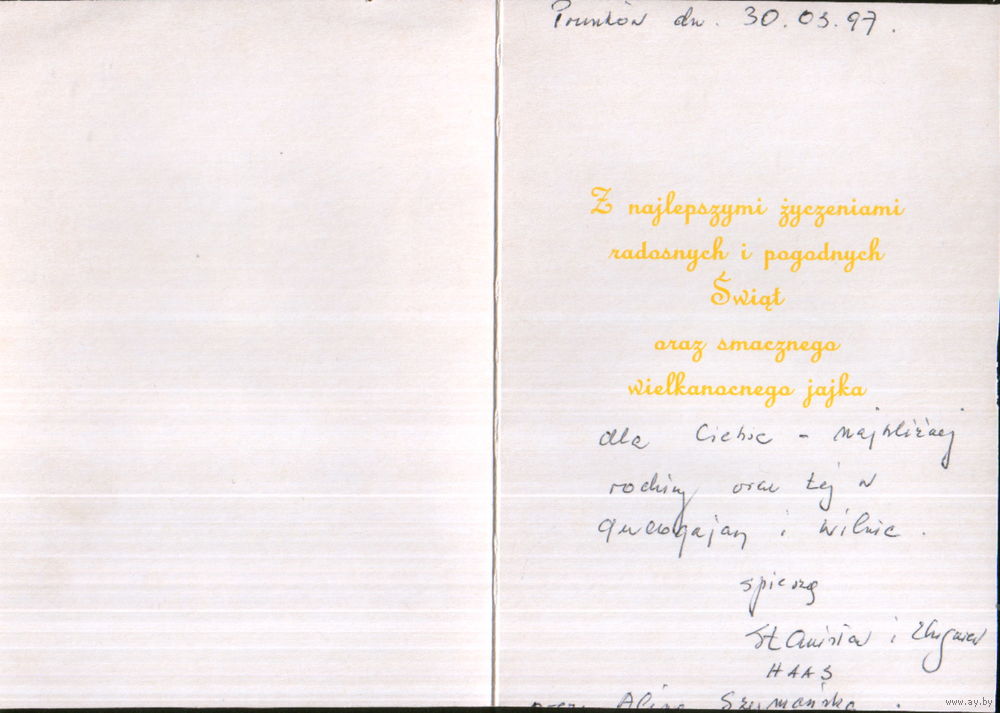 dn. 30.03.97.
Z najlepszymi życzeniami
radosnych i pogodnych
Świąt
oraz smacznego
wielkanocnego jajka
dla Ciebie - najbliższej
rodziny oraz tej w
i Wilnie.
spieszą
Stanisław i Zbigniew
HAAS
oraz Alina Szumańska.
www.ay.by